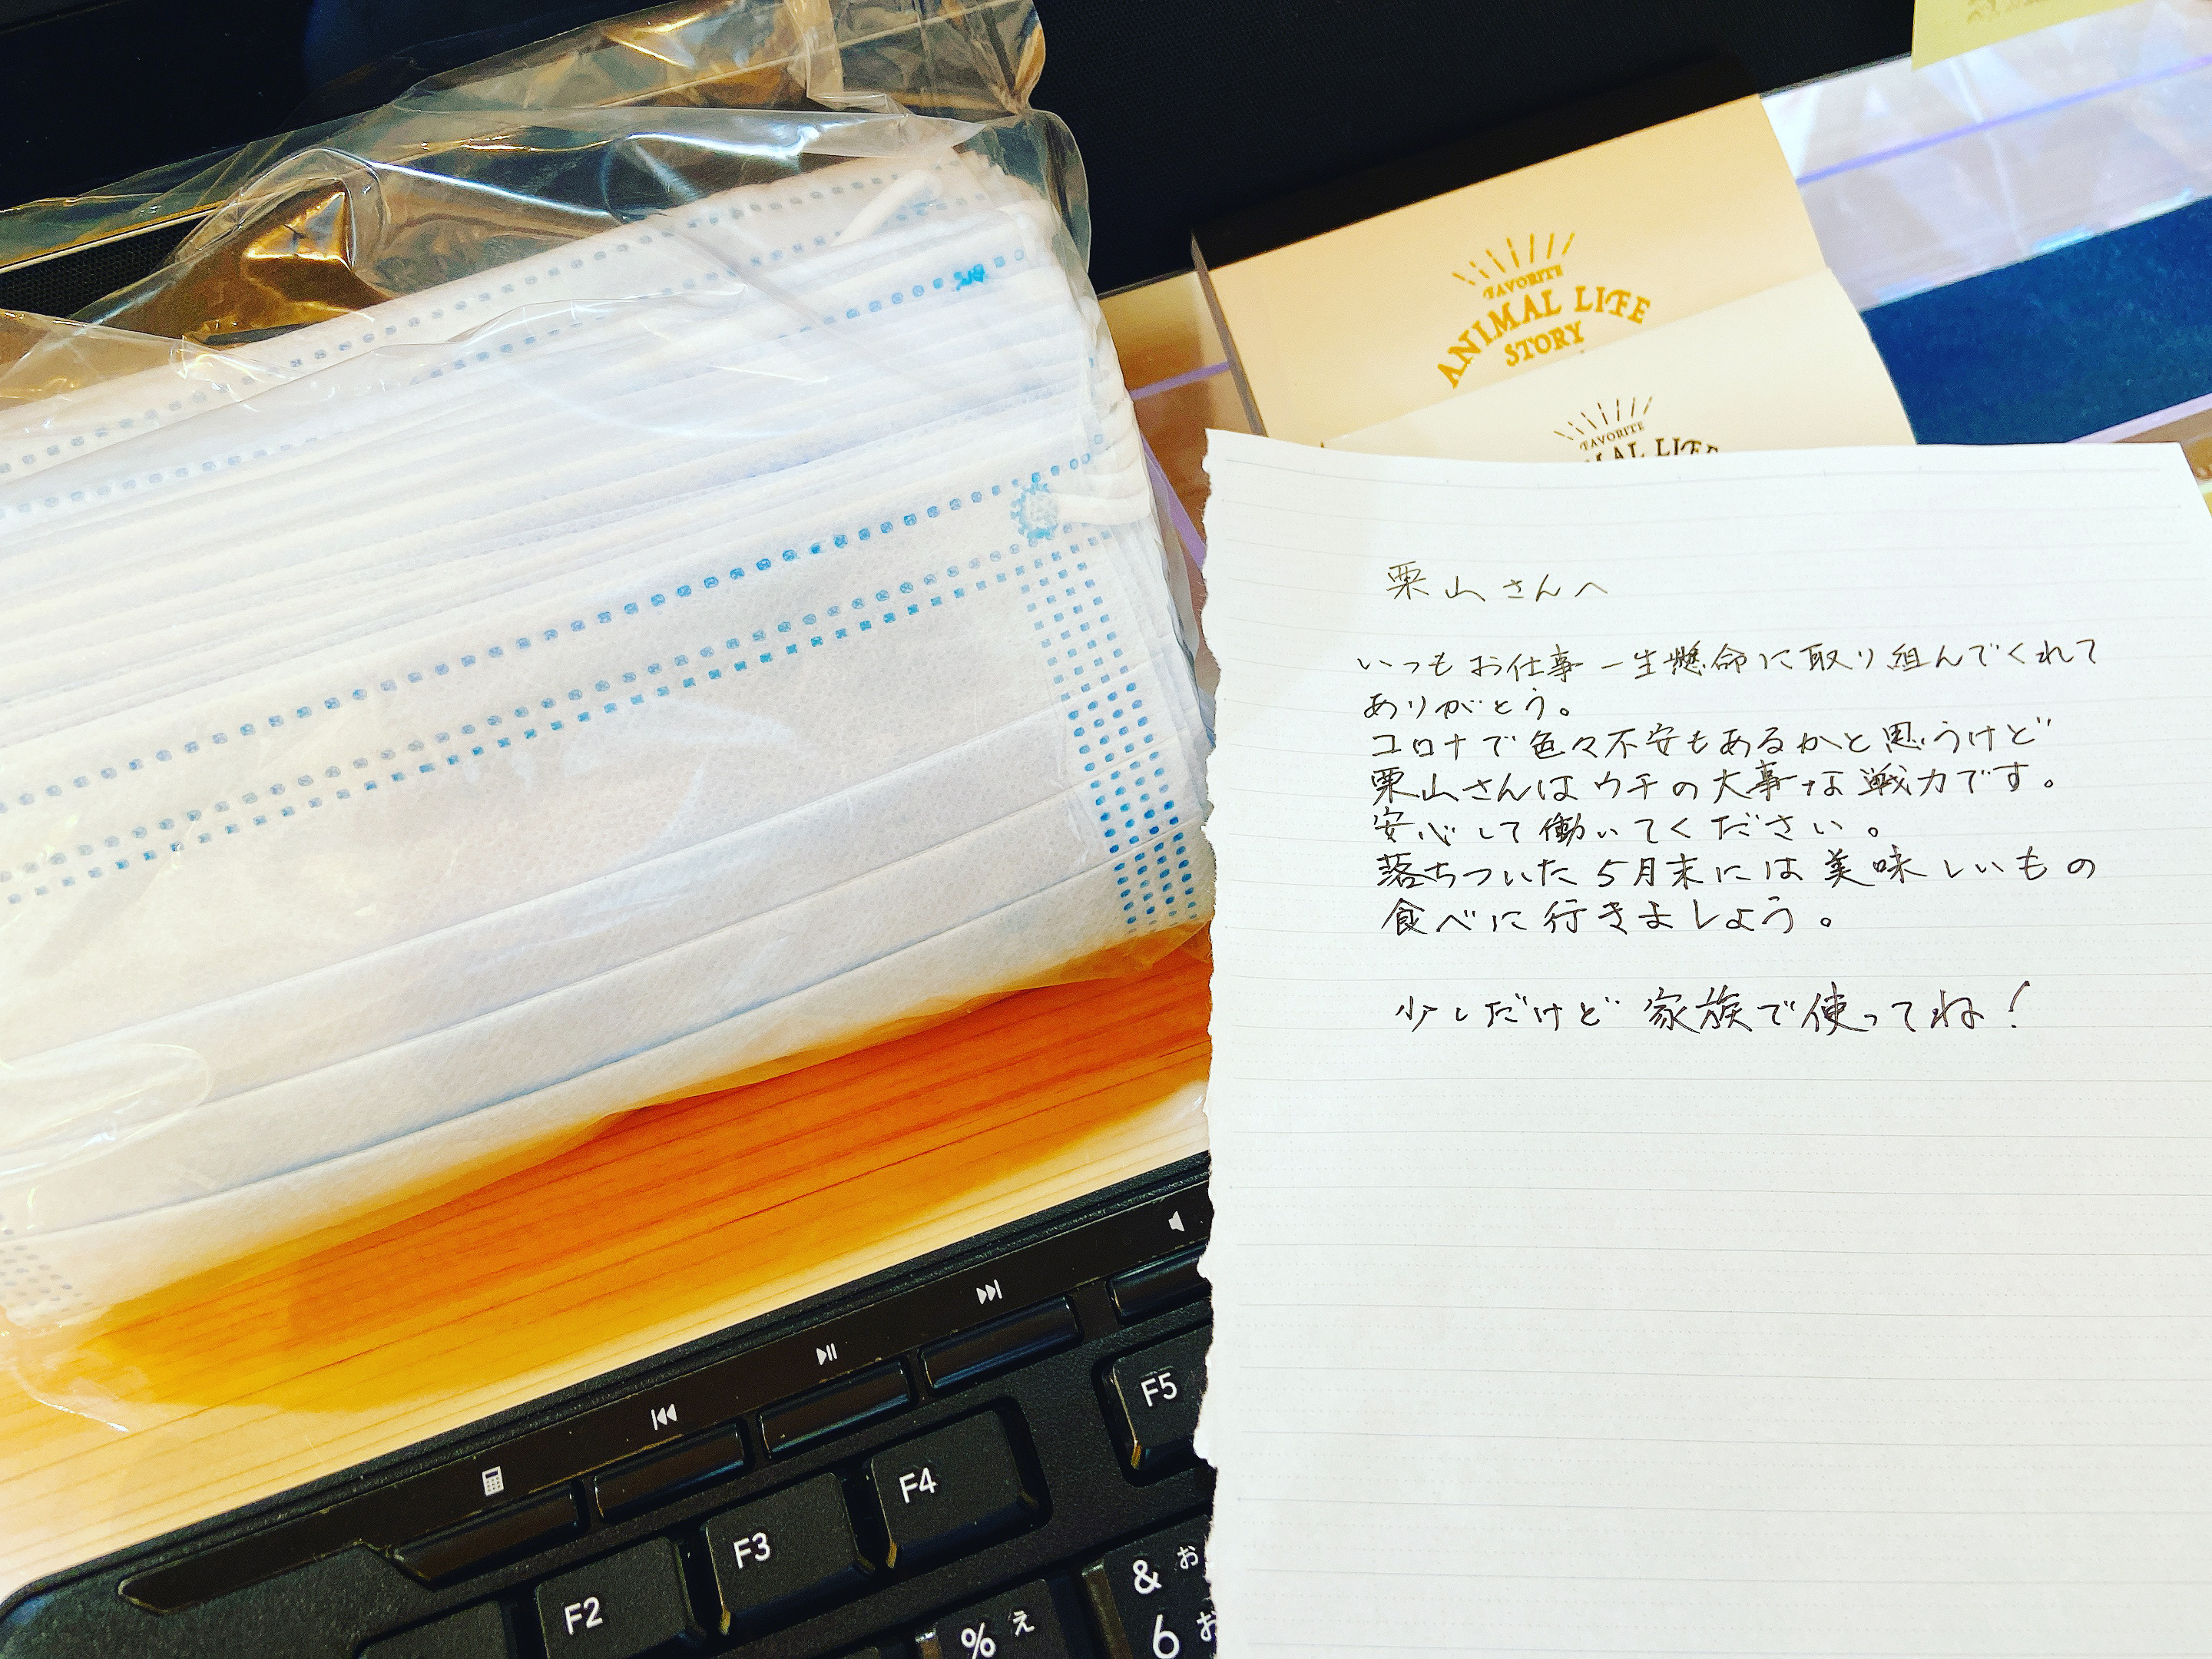 FAVORITE
ANIMAL LIFE
STORY
FAVORITE
MAL LIFE
栗山さんへ
いつもお仕事一生懸命に取り組んでくれて
ありがとう。
コロナで色々不安もあるかと思うけど
栗山さんはウチの大事な戦力です。
安心して働いてください。
落ちついた5月末には美味しいもの
食べに行きましょう。
少しだけど家族で使ってね!
F5
F4
F3
F2
& お
6 お
% え